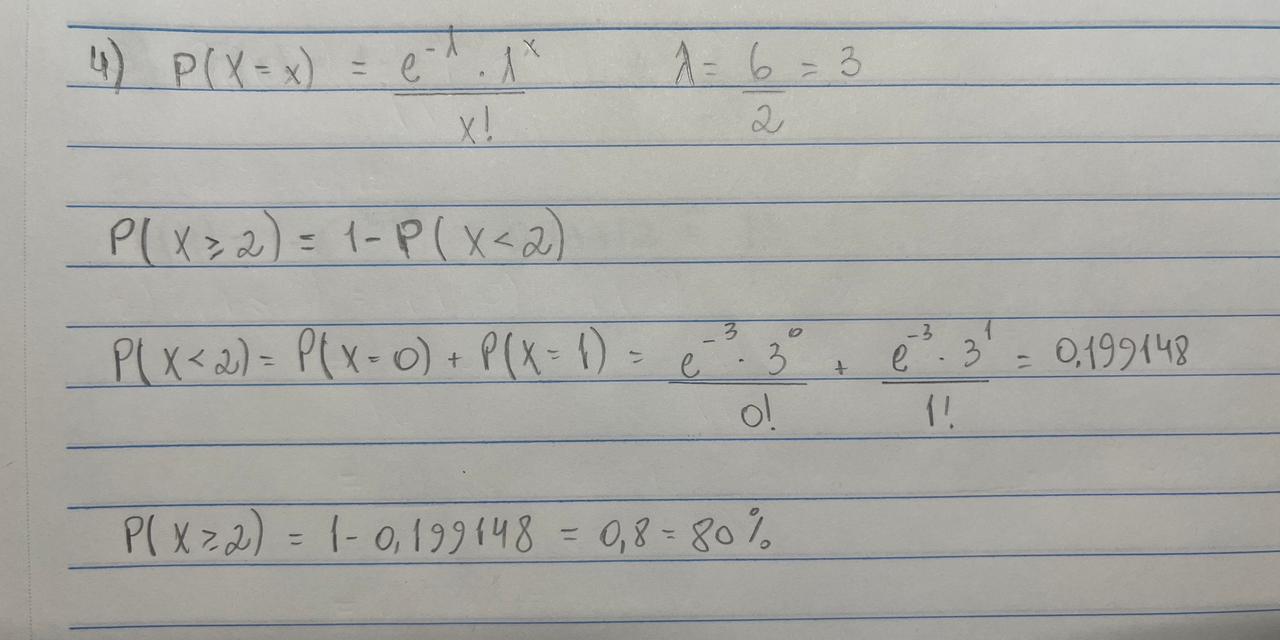 4) P(X = x) = e^-λ · λ^x / x! λ = 6/2 = 3
P(X ≥ 2) = 1 - P(X < 2)
P(X < 2) = P(X = 0) + P(X = 1) = e^-3 · 3^0 / 0! + e^-3 · 3^1 / 1! = 0,199148
P(X ≥ 2) = 1 - 0,199148 = 0,8 = 80%